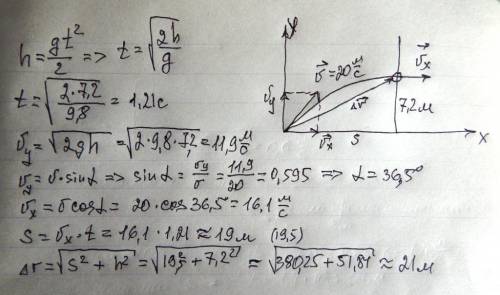 h = gt²/2 => t = √(2h/g)
t = √(2·7,2/9,8) = 1,21с
υy = √(2gh) = √(2·9,8·7,2) = 11,9 м/с
υy = υ·sinα => sinα = υy/υ = 11,9/20 = 0,595 => α = 36,5°
υx = υcosα = 20·cos36,5° = 16,1 м/с
S = υx·t = 16,1·1,21 ≈ 19м (19,5)
Δr = √(S² + h²) = √(19,5² + 7,2²) ≈ √(380,25 + 51,84) ≈ 21м
y
υ⃗ = 20 м/с
υ⃗x
υy
Δr⃗
7,2м
υ⃗x
S
x